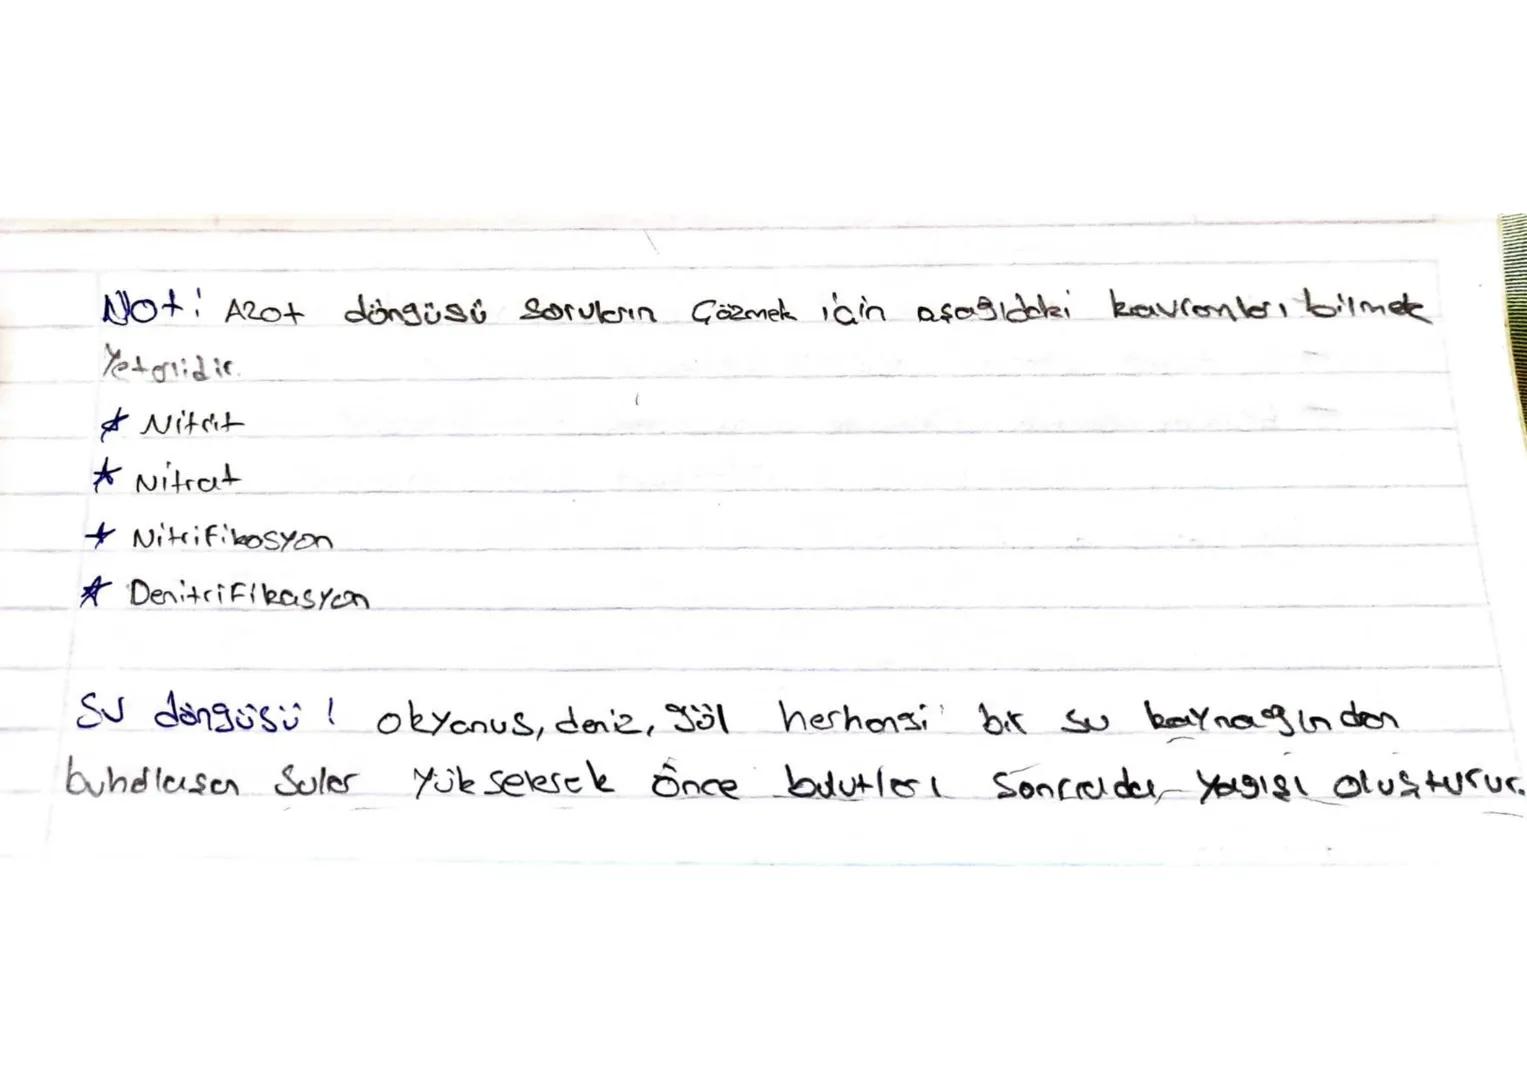 Not: Azot döngüsü soruların Çözmek için aşağıdaki kavramları bilmek
Yeterlidir.
* Nitrit
* Nitrat
* Nitrifikasyon
* Denitrifikasyon
Su döngüsü: Okyanus, deniz, göl herhangi bir su kaynağından
buharlaşan Sular Yükselerek Önce bulutları Sonrada Yağışı oluşturur.